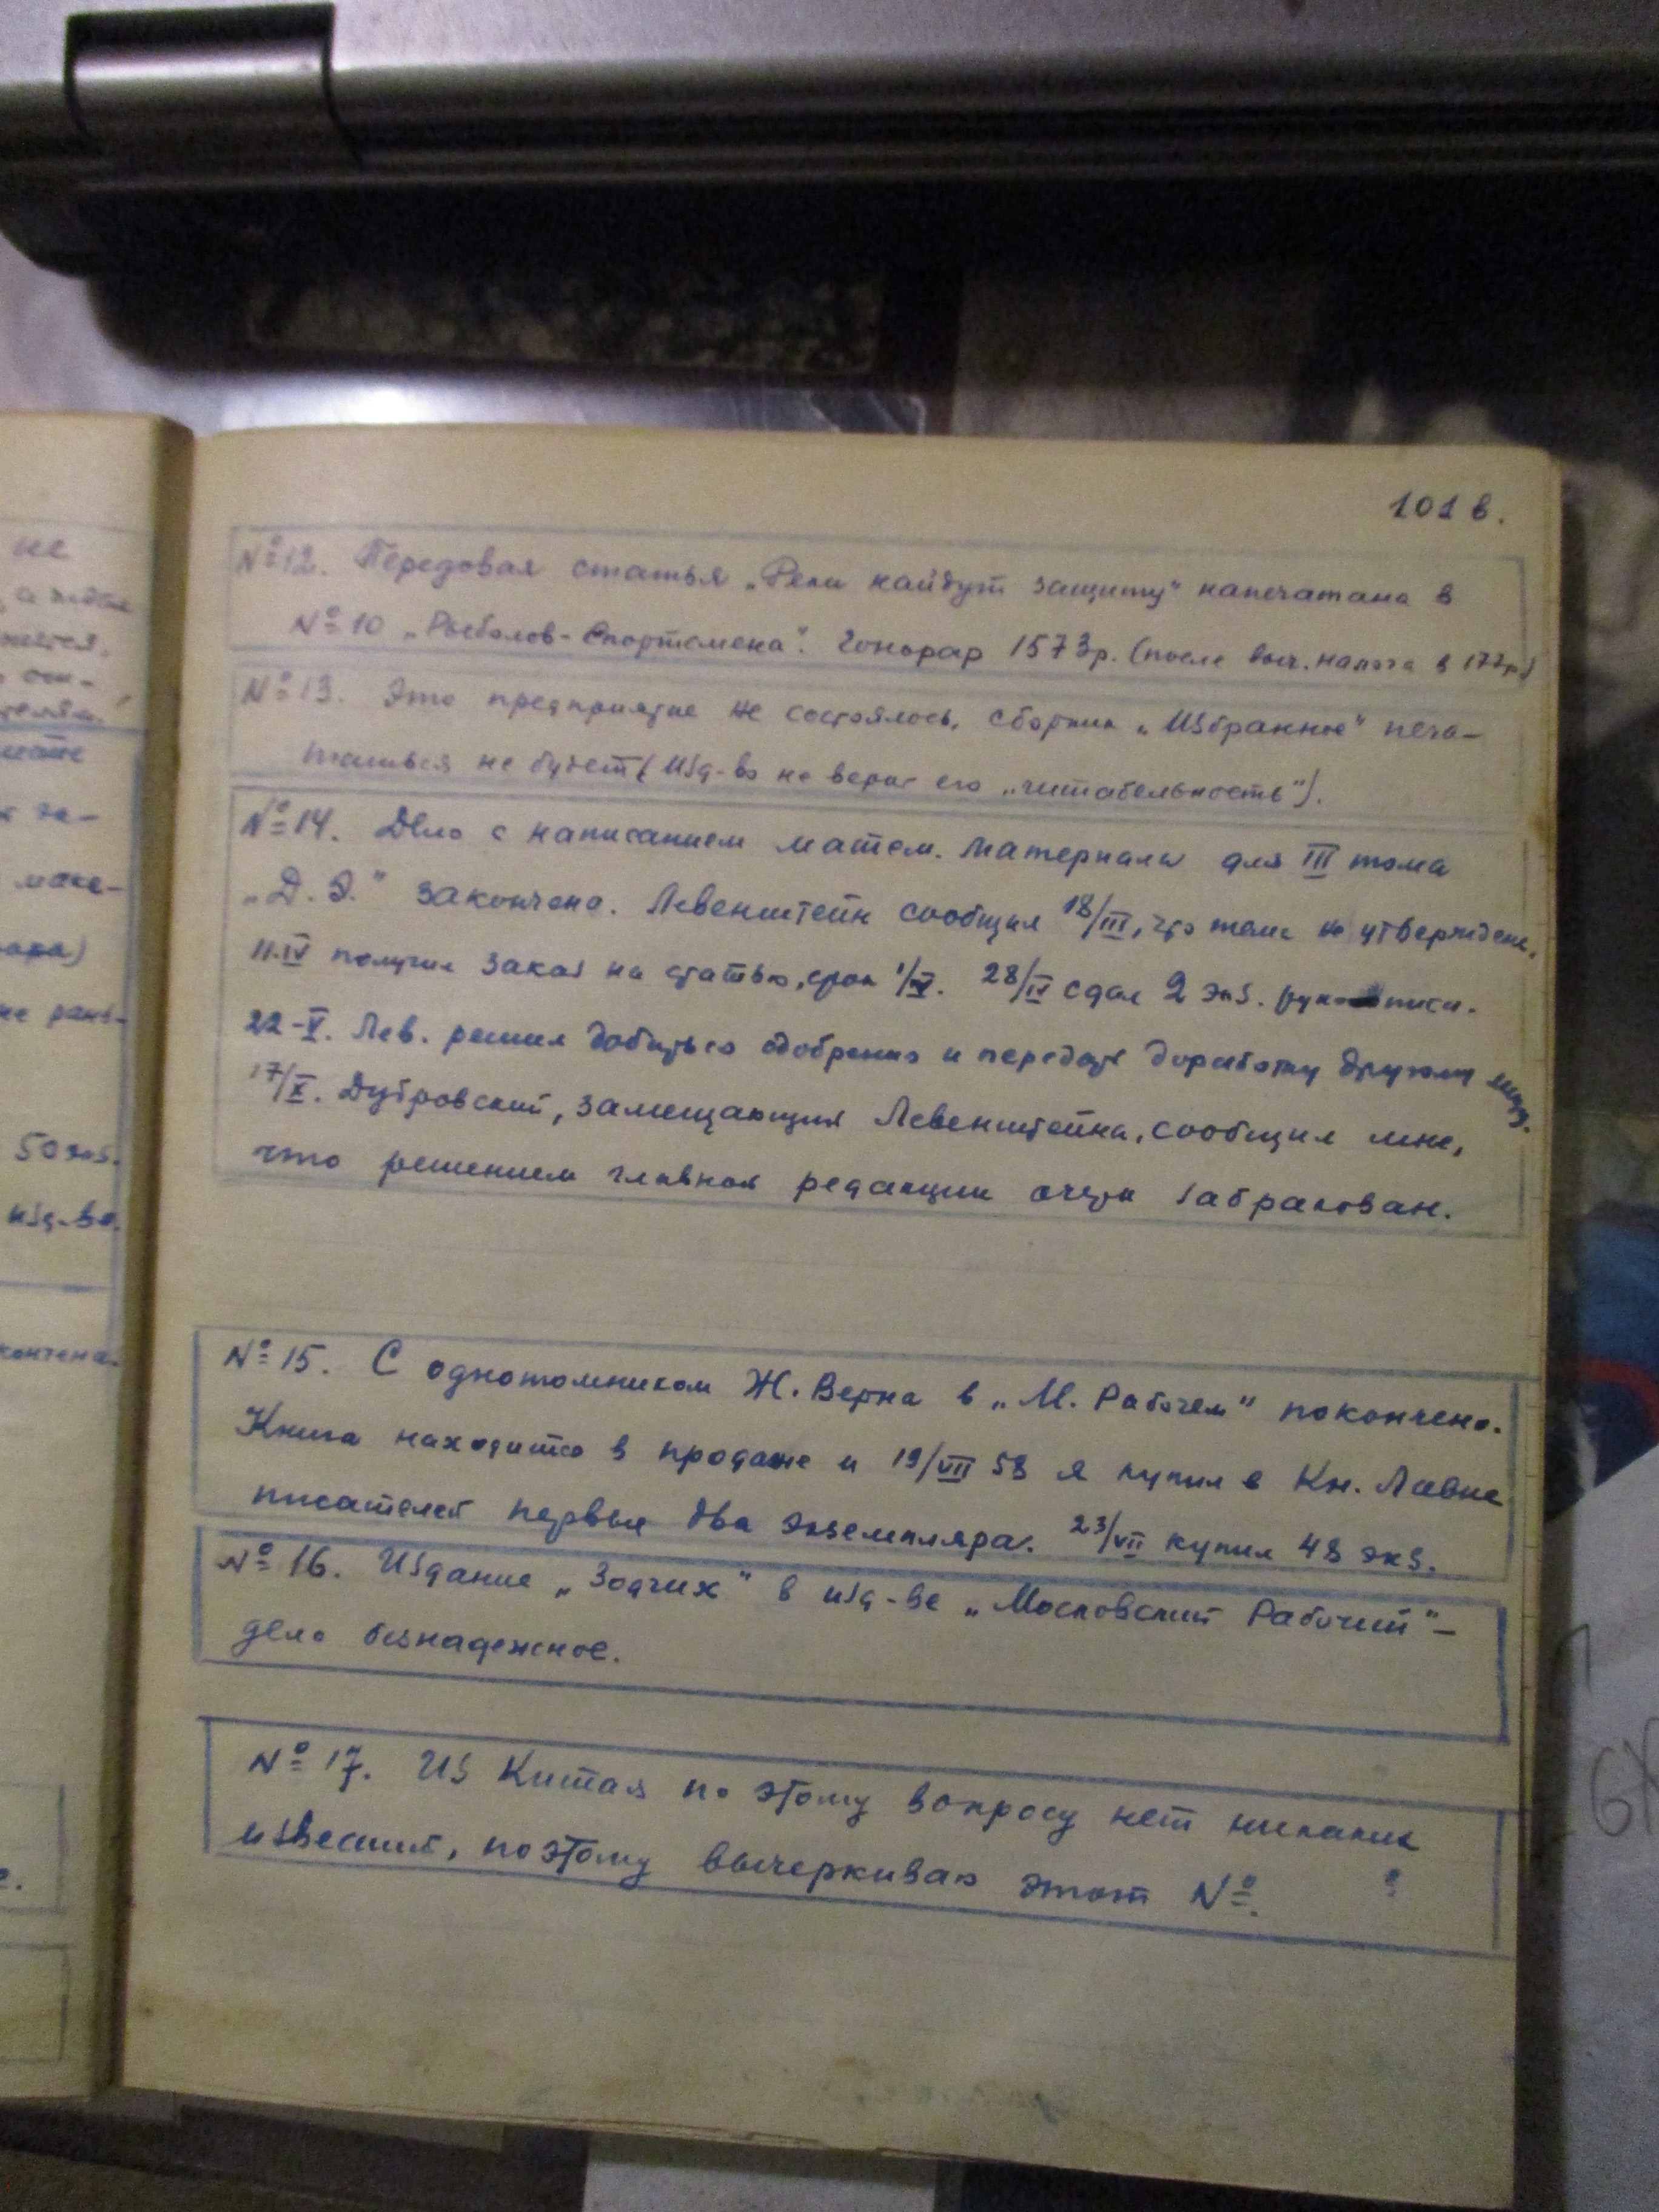 101 в.
№ 12. Передовая статья „Реки найдут защиту" напечатана в
№ 10 „Рыболов-Спортсмена". Гонорар 1573 р. (после выч. налога в 177 р.)
№ 13. Это предприятие не состоялось, сборник „Избранное" печа-
таться не будет (Изд-во не верит в его „читабельность").
№ 14. Дело с написанием матем. материала для III тома
„Д. Э." закончено. Левенштейн сообщил 18/III, что тема не утверждена,
11.IV получил заказ на статью, срок 1/V. 28/IV сдал 2 экз. рукописи.
22-V. Лев. решил добиться одобрения и передать доработку другому лицу.
17/X. Дубровский, замещающий Левенштейна, сообщил мне,
что решением главной редакции очерк забракован.
№ 15. С однотомником Ж. Верна в „М. Рабочем" покончено.
Книга находится в продаже и 19/VII 58 я купил в Кн. Лавке
писателей первые два экземпляра. 23/VII купил 48 экз.
№ 16. Издание „Зодчих" в изд-ве „Московский Рабочий" –
дело безнадежное.
№ 17. Из Китая по этому вопросу нет никаких
известий, поэтому вычеркиваю этот №.
не
50 экз.
изд-во.